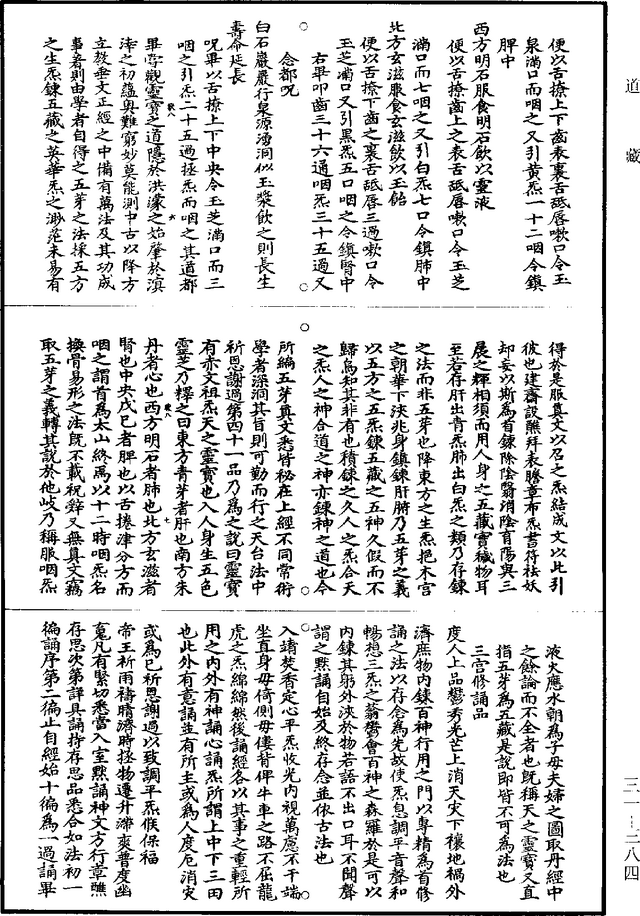 便以舌撩上下齒表裏舌䑛唇嗽口令玉
泉滿口而咽之又引黃炁一十二咽令鎮
脾中
西方明石服食明石飲以靈液
便以舌撩齒上之表舌䑛唇嗽口令玉芝
滿口而七咽之又引白炁七口令鎮肺中
北方玄滋服食玄滋飲以玉飴
便以舌撩下齒之裏舌䑛唇三過嗽口令
玉芝滿口又引黑炁五口咽之令鎮腎中
右畢叩齒三十六通咽炁三十五過又
念都呪
白石巖巖行泉源湧洞似玉漿飲之則長生
壽命延長
呪畢以舌撩上下中央令玉芝滿口而三
咽之引炁二十五過拯炁而咽之其道都
畢嘗觀靈寶之道隱於洪濛之始肇於溟
涬之初蘊奧難窮妙莫能測中古以降方
立教垂文正經之中備有萬法及其功成
事著則由學者自得之五芽之法採五方
之生炁鍊五藏之英華炁之渺茫未易有
得於是服真文以召之炁結成文以此引
彼也建齋設醮拜表謄章布炁書符祛妖
却妄以斯為首鍊除陰翳消陰育陽與三
晨之輝相須而用人身之五藏實穢物耳
至若存肝出青炁肺出白炁之類乃存鍊
之法而非五芽也降東方之生炁挹木宮
之朝華下浹兆身鎮鍊肝腑乃五芽之義
以五方之五炁鍊五藏之五神久假而不
歸烏知其非有也積鍊之久人之炁合天
之炁人之神合道之神亦鍊神之道也今
所編五芽真文悉皆秘在上經不同常術
學者深洞其旨則可勤而行之天台法中
祈恩謝過第四十一品乃為之說曰靈寶
有赤文祖炁天之靈寶也入人身生五色
靈芝乃釋之曰東方青芽者肝也南方朱
丹者心也西方明石者肺也北方玄滋者
腎也中央戊己者脾也以舌捲津分方而
咽之謂首為太山終焉以十二時咽炁名
換骨易形之法旣不載祝辤又無真文竊
取五芽之義轉其說於他岐乃稱服咽炁
液火應水朝為子母夫婦之圖取丹經中
之餘論而不全者也旣稱天之靈寶又直
指五芽為五藏是說即皆不可為法也
三官修誦品
度人上品鬱秀光芒上消天灾下禳地禍外
濟庶物內鍊百神行用之門以專精為首修
誦之法以存念為先故使炁息調平音聲和
暢想三炁之蓊鬱會百神之森羅於是可以
內鍊其躬外浹於物若語不出口耳不聞聲
謂之默誦自始及終存念並依古法也
入靖焚香定心平炁收光內視萬慮不干端
坐直身毋倚側毋僂背俾牛車之路不屈龍
虎之炁綿綿然後誦經各以其事之重輕所
用之內外有神誦心誦炁所謂上中下三田
也此外有意誦並有所主或為人度厄消灾
或為己祈恩謝過以致調平炁候保福
帝王祈雨禱晴濟時拯物遷升滯爽普度幽
冤凡有緊切悉當入室默誦神文方行章醮
存思次第詳具誦持存思品悉合如法初一
徧誦序第二徧止自經始十徧為一過誦畢
道藏
三一-三八四